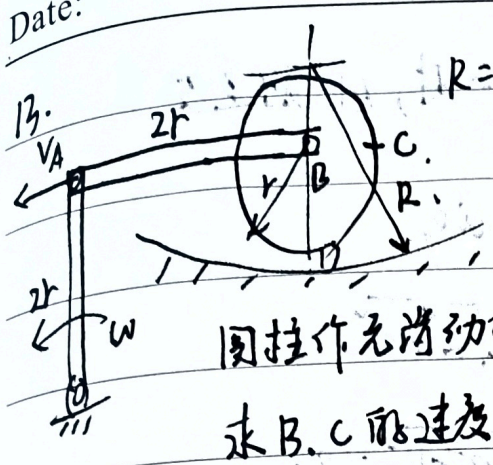 Date:
13.
R=
2r
V_A
C.
B
r
R.
D
2r
ω
O
圆柱作无滑动
求B.C的速度